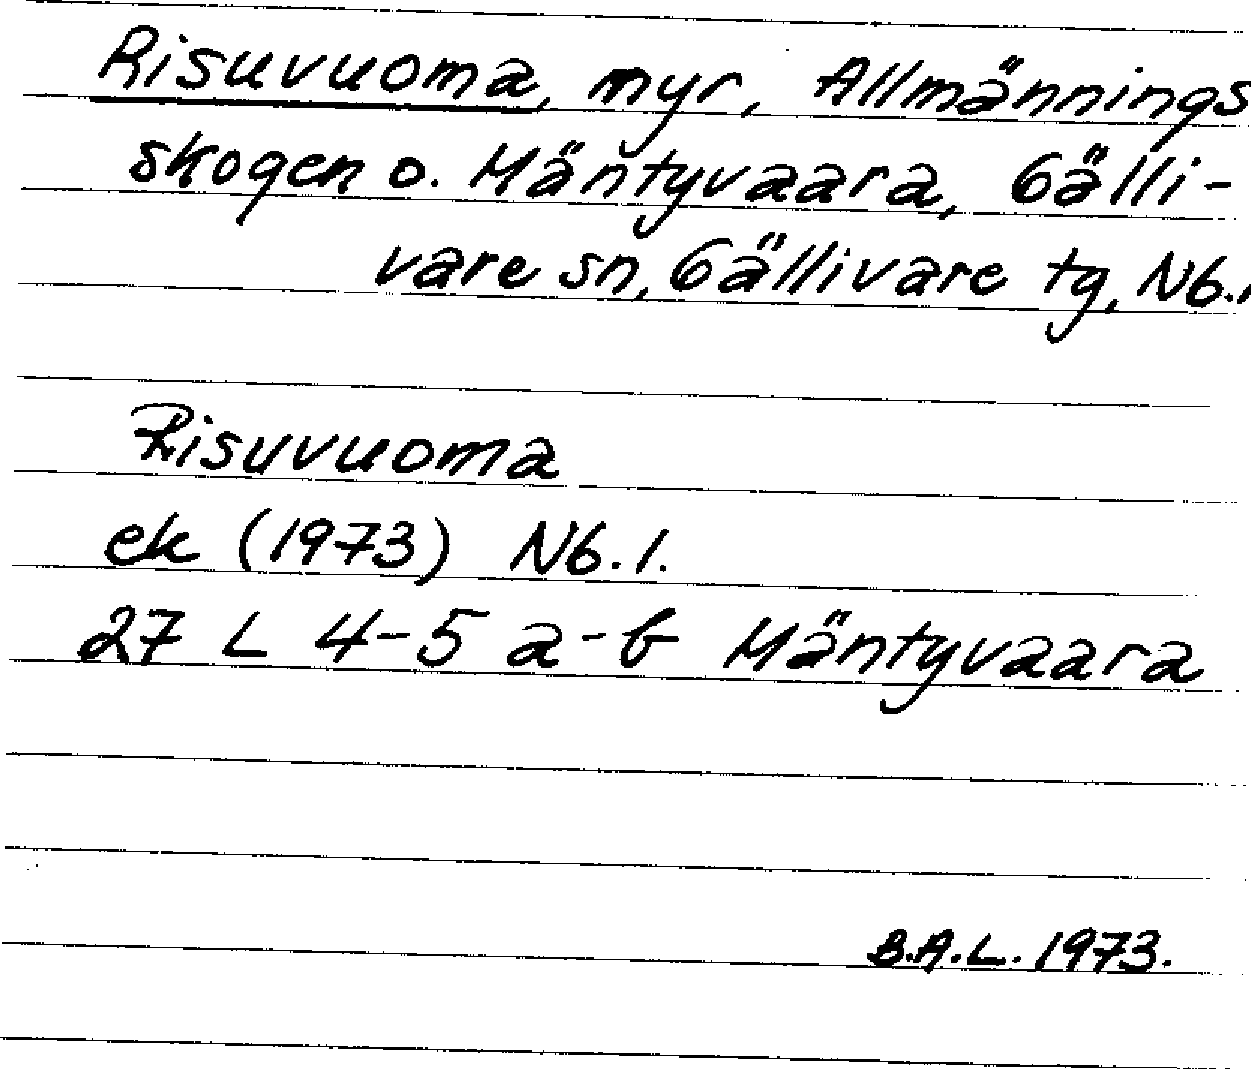 Risuvuoma, myr, Allmännings
skogen o. Mäntyvaara, Gälli-
vare sn, Gällivare tg, Nb.
Risuvuoma
ek (1973) Nb. l.
27 L 4-5 a-b Mäntyvaara
B.A.L. 1973.